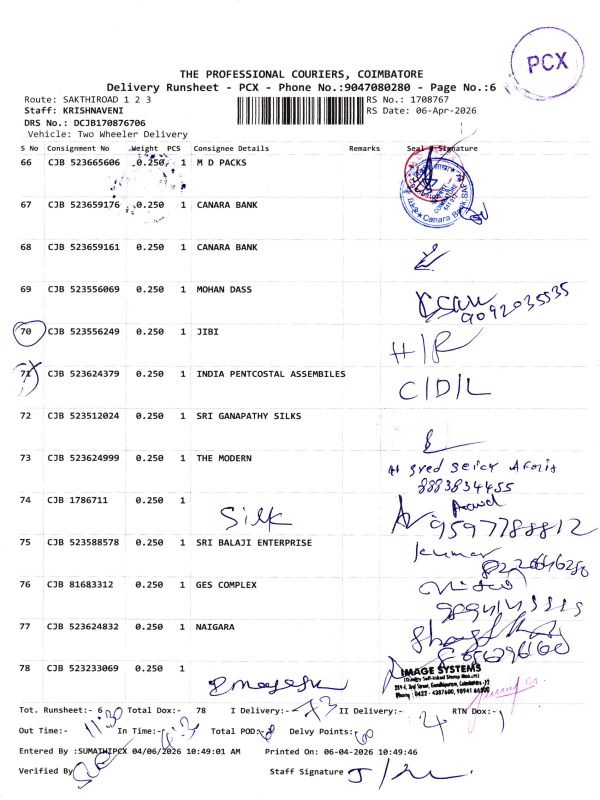 PCX
THE PROFESSIONAL COURIERS, COIMBATORE
Delivery Runsheet - PCX - Phone No.:9047080280 - Page No.:6
Route: SAKTHIROAD 1 2 3
RS No.: 1708767
Staff: KRISHNAVENI
RS Date: 06-Apr-2026
DRS No.: DCJB170876706
Vehicle: Two Wheeler Delivery
S No Consignment No Weight PCS Consignee Details Remarks Seal & Signature
66 CJB 523665606 0.250 1 M D PACKS
67 CJB 523659176 0.250 1 CANARA BANK
Canara Bank
68 CJB 523659161 0.250 1 CANARA BANK
69 CJB 523556069 0.250 1 MOHAN DASS
9092035535
70 CJB 523556249 0.250 1 JIBI
H/R
71 CJB 523624379 0.250 1 INDIA PENTCOSTAL ASSEMBILES
C/D/L
72 CJB 523512024 0.250 1 SRI GANAPATHY SILKS
73 CJB 523624999 0.250 1 THE MODERN
8883834455
74 CJB 1786711 0.250 1
Silk
9597788812
75 CJB 523588578 0.250 1 SRI BALAJI ENTERPRISE
kumar
76 CJB 81683312 0.250 1 GES COMPLEX
77 CJB 523624832 0.250 1 NAIGARA
78 CJB 523233069 0.250 1
IMAGE SYSTEMS
Tot. Runsheet:- 6 Total Dox:- 78 I Delivery:- 73 II Delivery:- 4 RTN Dox:- 1
Out Time:- 11:30 In Time:- Total POD:- Delvy Points:-
Entered By :SUMATHIPCX 04/06/2026 10:49:01 AM Printed On: 06-04-2026 10:49:46
Verified By
Staff Signature